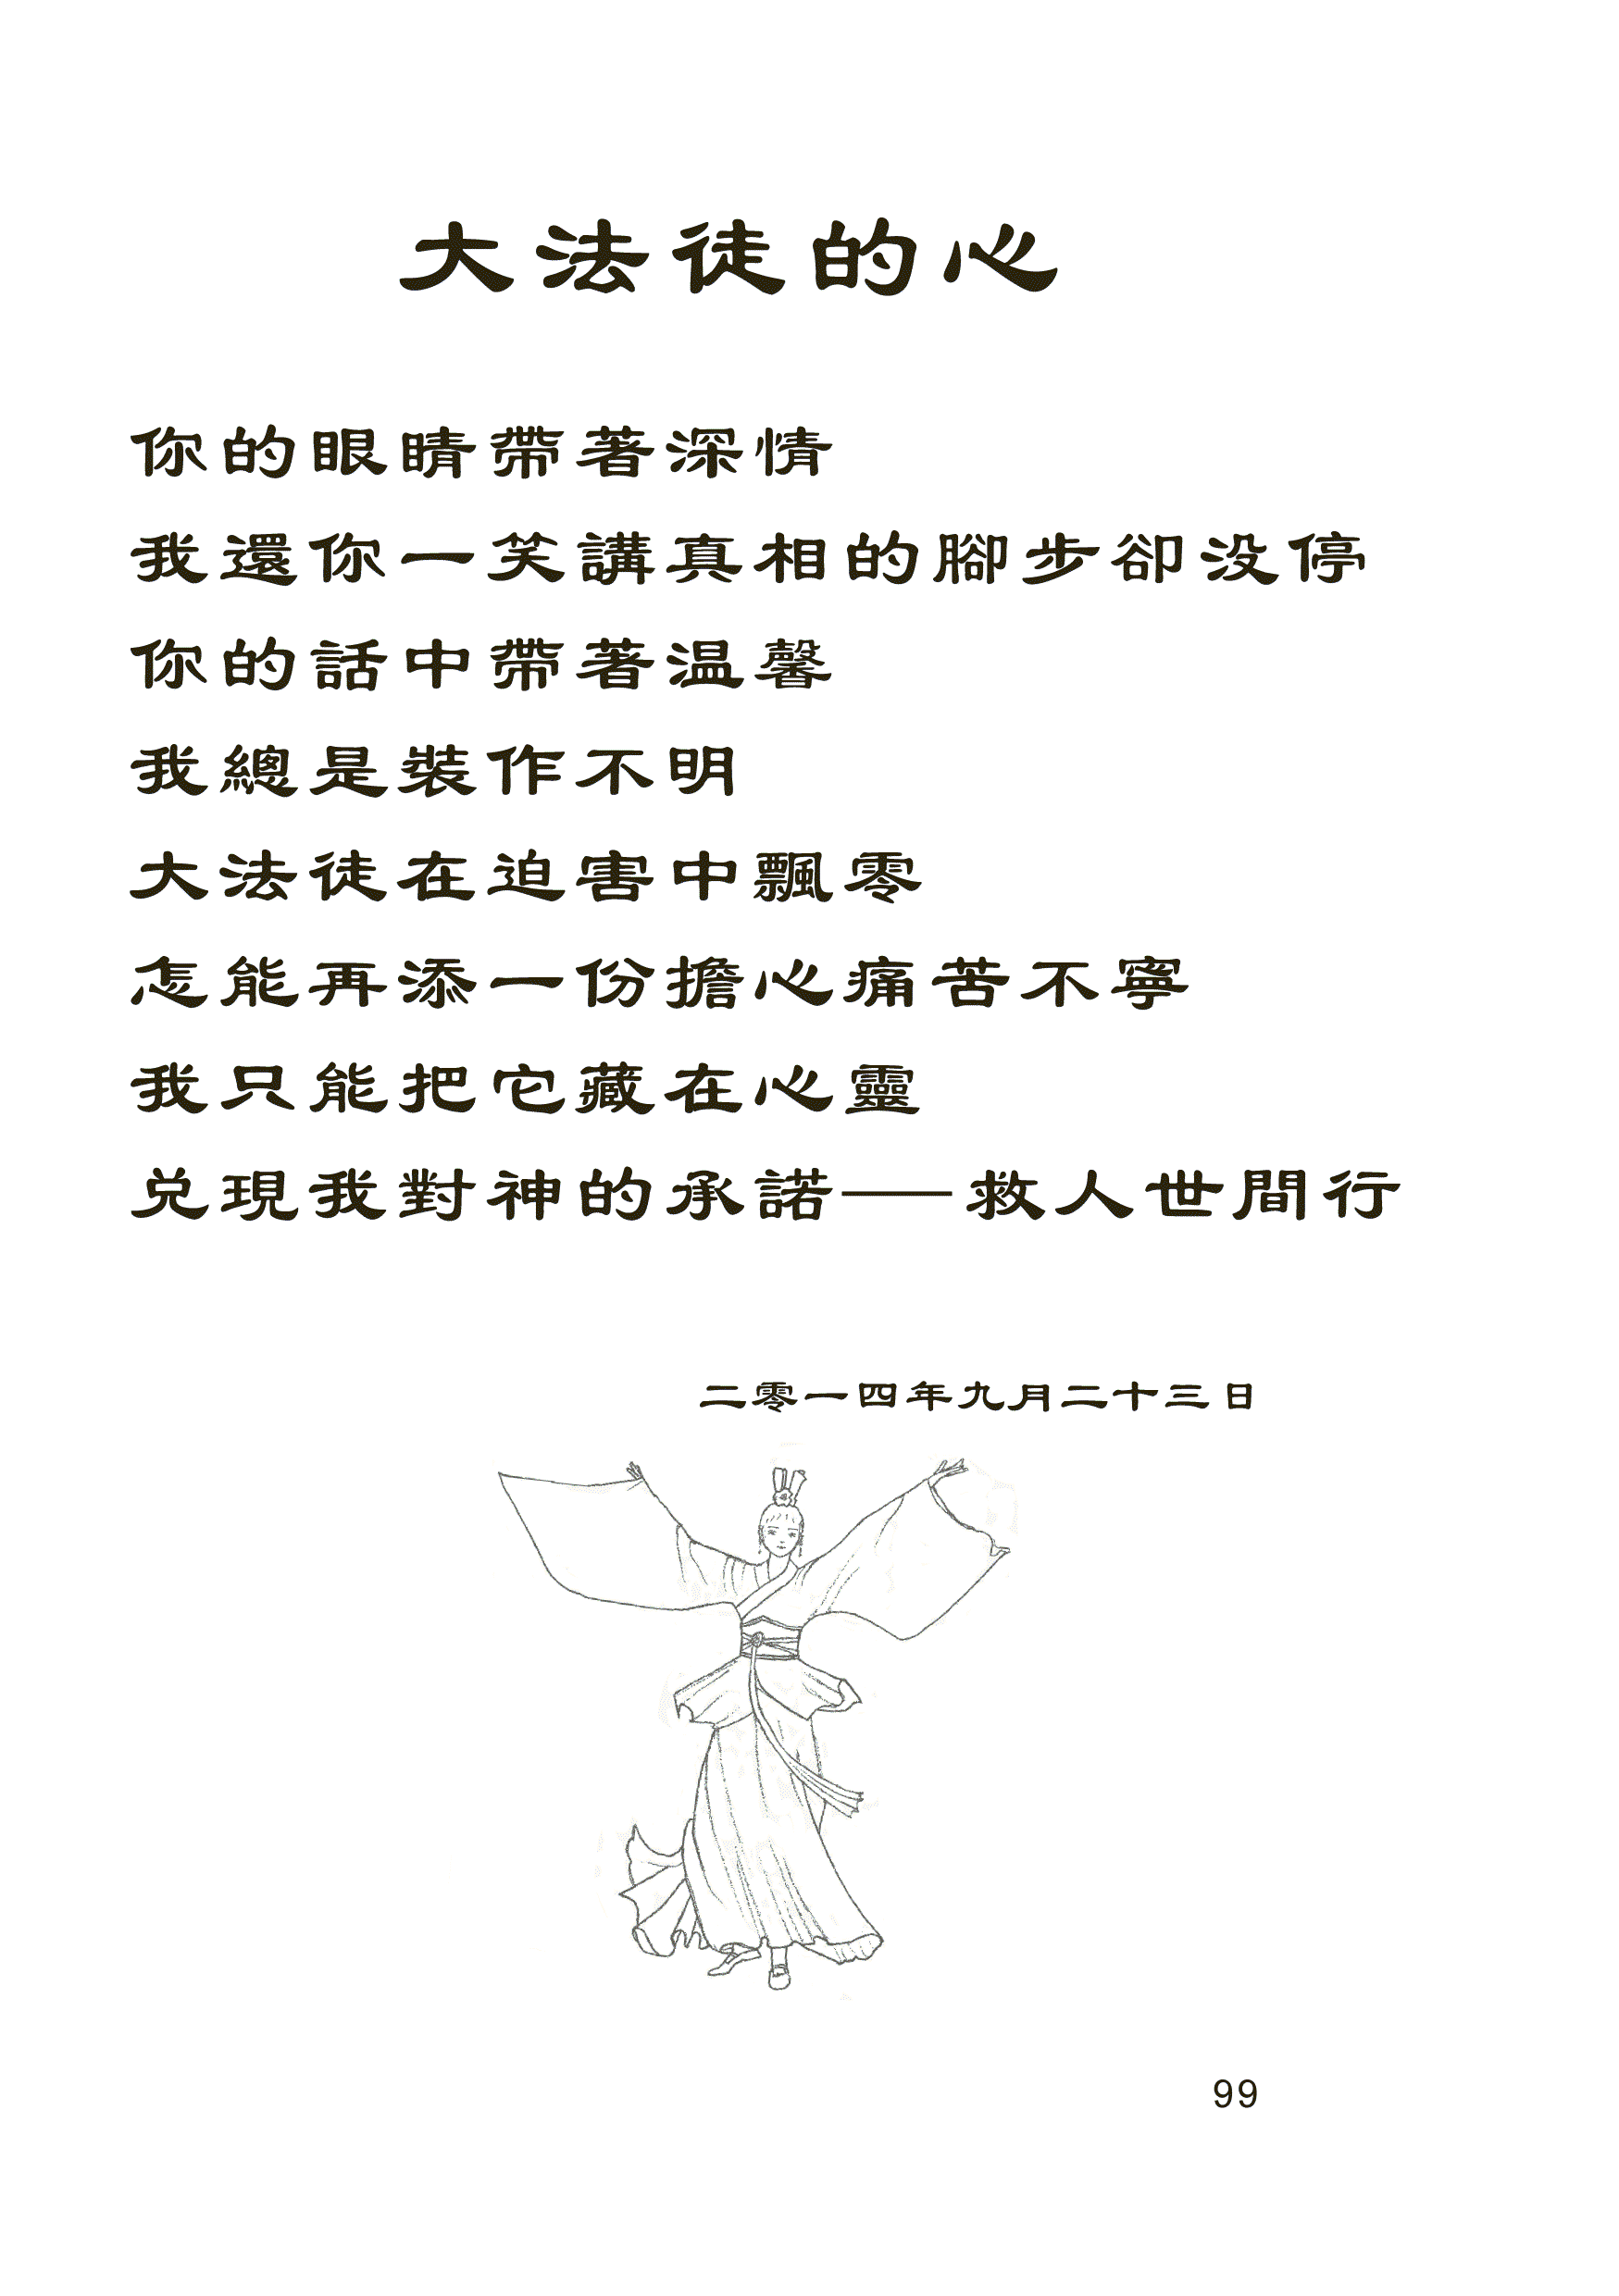 大法徒的心
你的眼睛帶著深情
我還你一笑講真相的腳步卻没停
你的話中帶著温馨
我總是裝作不明
大法徒在迫害中飄零
怎能再添一份擔心痛苦不寧
我只能把它藏在心靈
兑現我對神的承諾——救人世間行
二零一四年九月二十三日
99